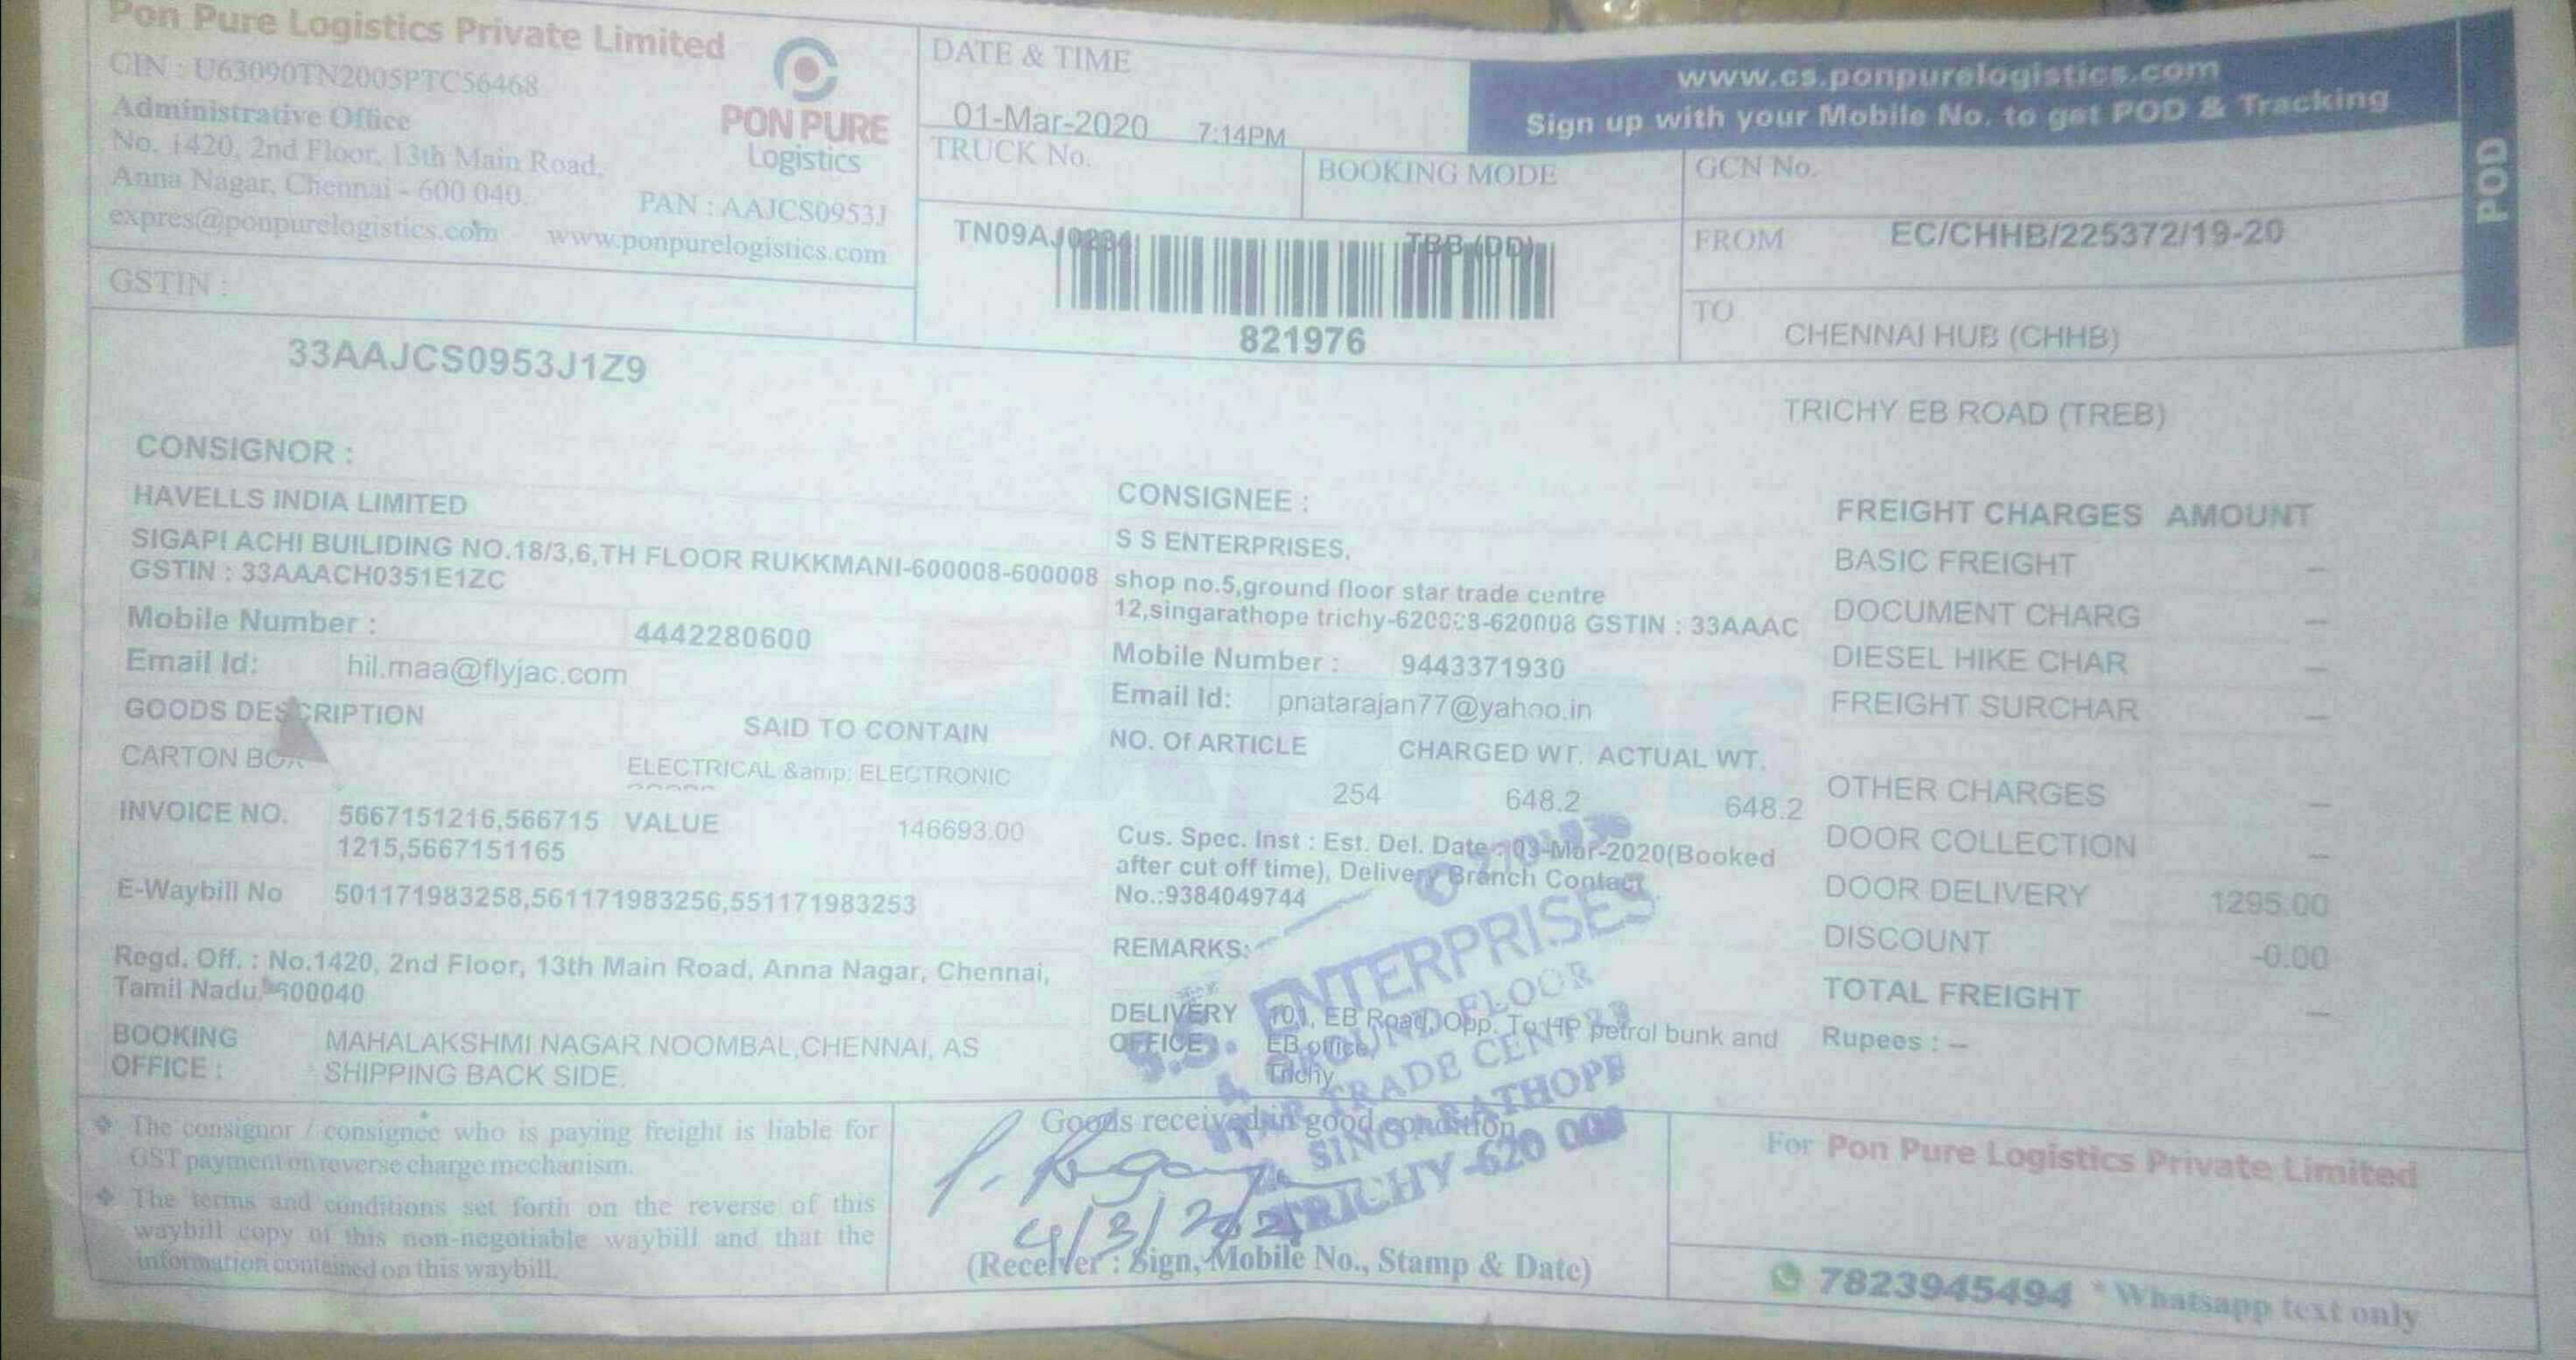 Pon Pure Logistics Private Limited
CIN : U63090TN2005PTC56468
Administrative Office
No. 1420, 2nd Floor, 13th Main Road,
Anna Nagar, Chennai - 600 040.
PAN : AAJCS0953J
expres@ponpurelogistics.com www.ponpurelogistics.com
PON PURE
Logistics
GSTIN :
33AAJCS0953J1Z9
DATE & TIME
01-Mar-2020 7:14PM
TRUCK No.
BOOKING MODE
TN09AJ0234
TBB (DD)
821976
www.cs.ponpurelogistics.com
Sign up with your Mobile No. to get POD & Tracking
POD
GCN No.
EC/CHHB/225372/19-20
FROM
CHENNAI HUB (CHHB)
TO
TRICHY EB ROAD (TREB)
CONSIGNOR :
HAVELLS INDIA LIMITED
SIGAPI ACHI BUILIDING NO.18/3,6,TH FLOOR RUKKMANI-600008-600008
GSTIN : 33AAACH0351E1ZC
Mobile Number : 4442280600
Email Id: hil.maa@flyjac.com
GOODS DESCRIPTION SAID TO CONTAIN
CARTON BOX ELECTRICAL &amp; ELECTRONIC
INVOICE NO. 5667151216,566715 VALUE 146693.00
1215,5667151165
E-Waybill No 501171983258,561171983256,551171983253
Regd. Off. : No.1420, 2nd Floor, 13th Main Road, Anna Nagar, Chennai,
Tamil Nadu. 600040
BOOKING OFFICE : MAHALAKSHMI NAGAR NOOMBAL,CHENNAI, AS
SHIPPING BACK SIDE.
CONSIGNEE :
S S ENTERPRISES,
shop no.5,ground floor star trade centre
12,singarathope trichy-620008-620008 GSTIN : 33AAAC
Mobile Number : 9443371930
Email Id: pnatarajan77@yahoo.in
NO. Of ARTICLE CHARGED WT. ACTUAL WT.
254 648.2 648.2
Cus. Spec. Inst : Est. Del. Date : 03-Mar-2020(Booked
after cut off time), Delivery Branch Contact
No.:9384049744
REMARKS:
DELIVERY OFFICE : 101, EB Road, Opp. To HP petrol bunk and
EB office,
Trichy
FREIGHT CHARGES AMOUNT
BASIC FREIGHT –
DOCUMENT CHARG –
DIESEL HIKE CHAR –
FREIGHT SURCHAR –
OTHER CHARGES –
DOOR COLLECTION –
DOOR DELIVERY 1295.00
DISCOUNT -0.00
TOTAL FREIGHT –
Rupees : –
S.S. ENTERPRISES
GROUND FLOOR
STAR TRADE CENTRE
SINGARATHOPE
TRICHY-620 008
The consignor / consignee who is paying freight is liable for
GST payment on reverse charge mechanism.
The terms and conditions set forth on the reverse of this
waybill copy of this non-negotiable waybill and that the
information contained on this waybill.
Goods received in good condition
4/3/2020
(Receiver : Sign, Mobile No., Stamp & Date)
For Pon Pure Logistics Private Limited
7823945494 * Whatsapp text only